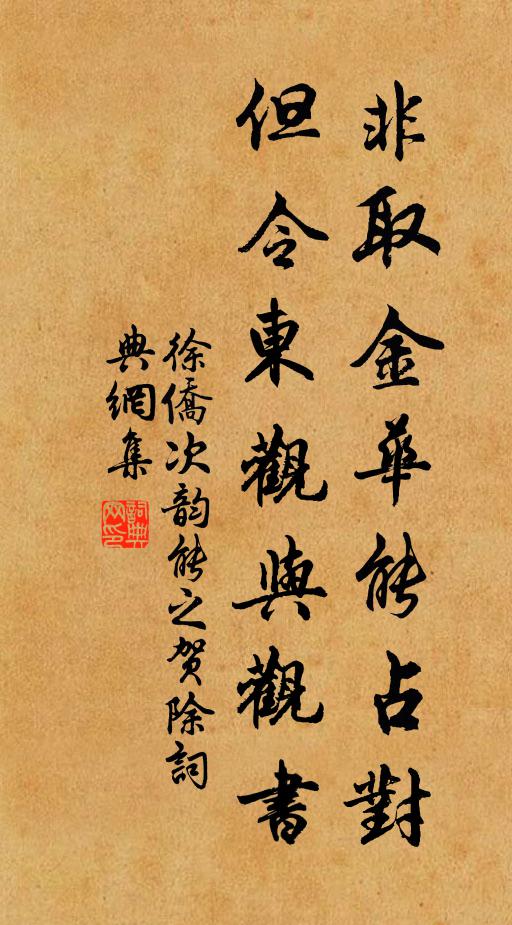 非取金華能占對
但令東觀與觀書
徐僑次韵能之贺除詞
典網集
詞典网印